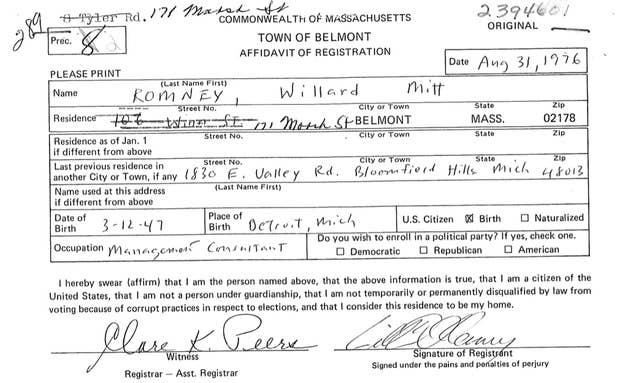 O Tyler Rd. 171 Marsh St COMMONWEALTH OF MASSACHUSETTS 2394601
289 TOWN OF BELMONT ORIGINAL
Prec. 8 AFFIDAVIT OF REGISTRATION
PLEASE PRINT Date Aug 31, 1976
(Last Name First)
Name ROMNEY, Willard Mitt
Street No. City or Town State Zip
Residence 171 Marsh St BELMONT MASS. 02178
Residence as of Jan. 1 Street No. City or Town State Zip
if different from above
Last previous residence in Street No. City or Town State Zip
another City or Town, if any 1830 E. Valley Rd. Bloomfield Hills Mich 48013
Name used at this address (Last Name First)
if different from above
Date of Birth 3-12-47 Place of Birth Detroit, Mich U.S. Citizen ☒ Birth ☐ Naturalized
Occupation Management Consultant Do you wish to enroll in a political party? If yes, check one.
☐ Democratic ☐ Republican ☐ American
I hereby swear (affirm) that I am the person named above, that the above information is true, that I am a citizen of the
United States, that I am not a person under guardianship, that I am not temporarily or permanently disqualified by law from
voting because of corrupt practices in respect to elections, and that I consider this residence to be my home.
Clare K. Peers
Witness Signature of Registrant
Registrar — Asst. Registrar Signed under the pains and penalties of perjury